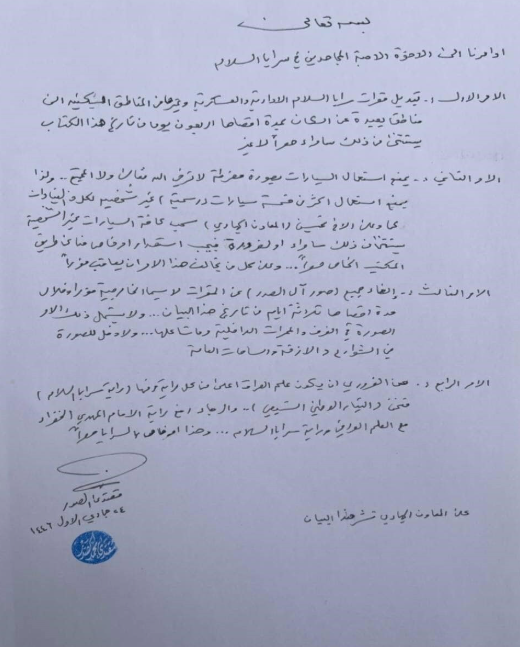 بسمه تعالى
اوامرنا الى الاخوة الاحبة المجاهدين في سرايا السلام
الامر الاول: تبديل مقرات سرايا السلام الادارية والعسكرية وغيرها من المناطق السكنية الى
مناطق بعيدة عن السكان بمدة اقصاها اربعون يوما من تاريخ هذا الكتاب
يستثنى من ذلك سامراء حصراً لا غير
الامر الثاني: يمنع استعمال السيارات بصورة مفرطة لا ترضي الله تعالى ولا المجتمع .. ولذا
يمنع استعمال اكثر من خمسة سيارات (رسمية) غير شخصية لكل القيادات
بما وعلى الاخ تحسين (المعاون الجهادي) سحب كافة السيارات غير الشخصية
يستثنى من ذلك سامراء او لضرورة فيجب استحصال اوامر خاص عن طريق
المكتب الخاص حصراً ... وعلى كل من يخالف هذا الامر ان يعاقب فوراً
الامر الثالث: إلغاء جميع (صور آل الصدر) من المقرات لا سيما الخارجية فوراً وخلال
مدة اقصاها ثلاثة ايام من تاريخ هذا البيان ... ولا يشمل ذلك الامر
الصورة في الغرف والممرات الداخلية وما شاكلها ... ولا دخل للصورة
في الشوارع والازقة والساحات العامة
الامر الرابع: من الضروري ان يكون علم العراق اعلى من كل راية وفيها (راية سرايا السلام)
فنحن (التيار الوطني الشيعي) .. والرجاء رفع راية الامام المهدي الخضراء
مع العلم العراقي وراية سرايا السلام ... وهذا امر خاص بالسرايا حصراً
مقتدى الصدر
٢٤ جمادي الاول ١٤٤٦
على المعاون الجهادي نشر هذا البيان